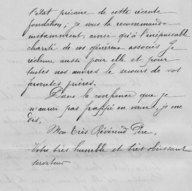 l'état précaire de cette récente
fondation, je vous la recommande
instamment, ainsi qu'à l'inépuisable
charité de vos généreux associés. Je
réclame aussi pour elle et pour
toutes nos œuvres le secours de vos
ferventes prières.
Dans la confiance que je
n'aurai pas frappé en vain, je me
dis,
Mon très Révérend Père,
Votre très humble et très obéissant
serviteur